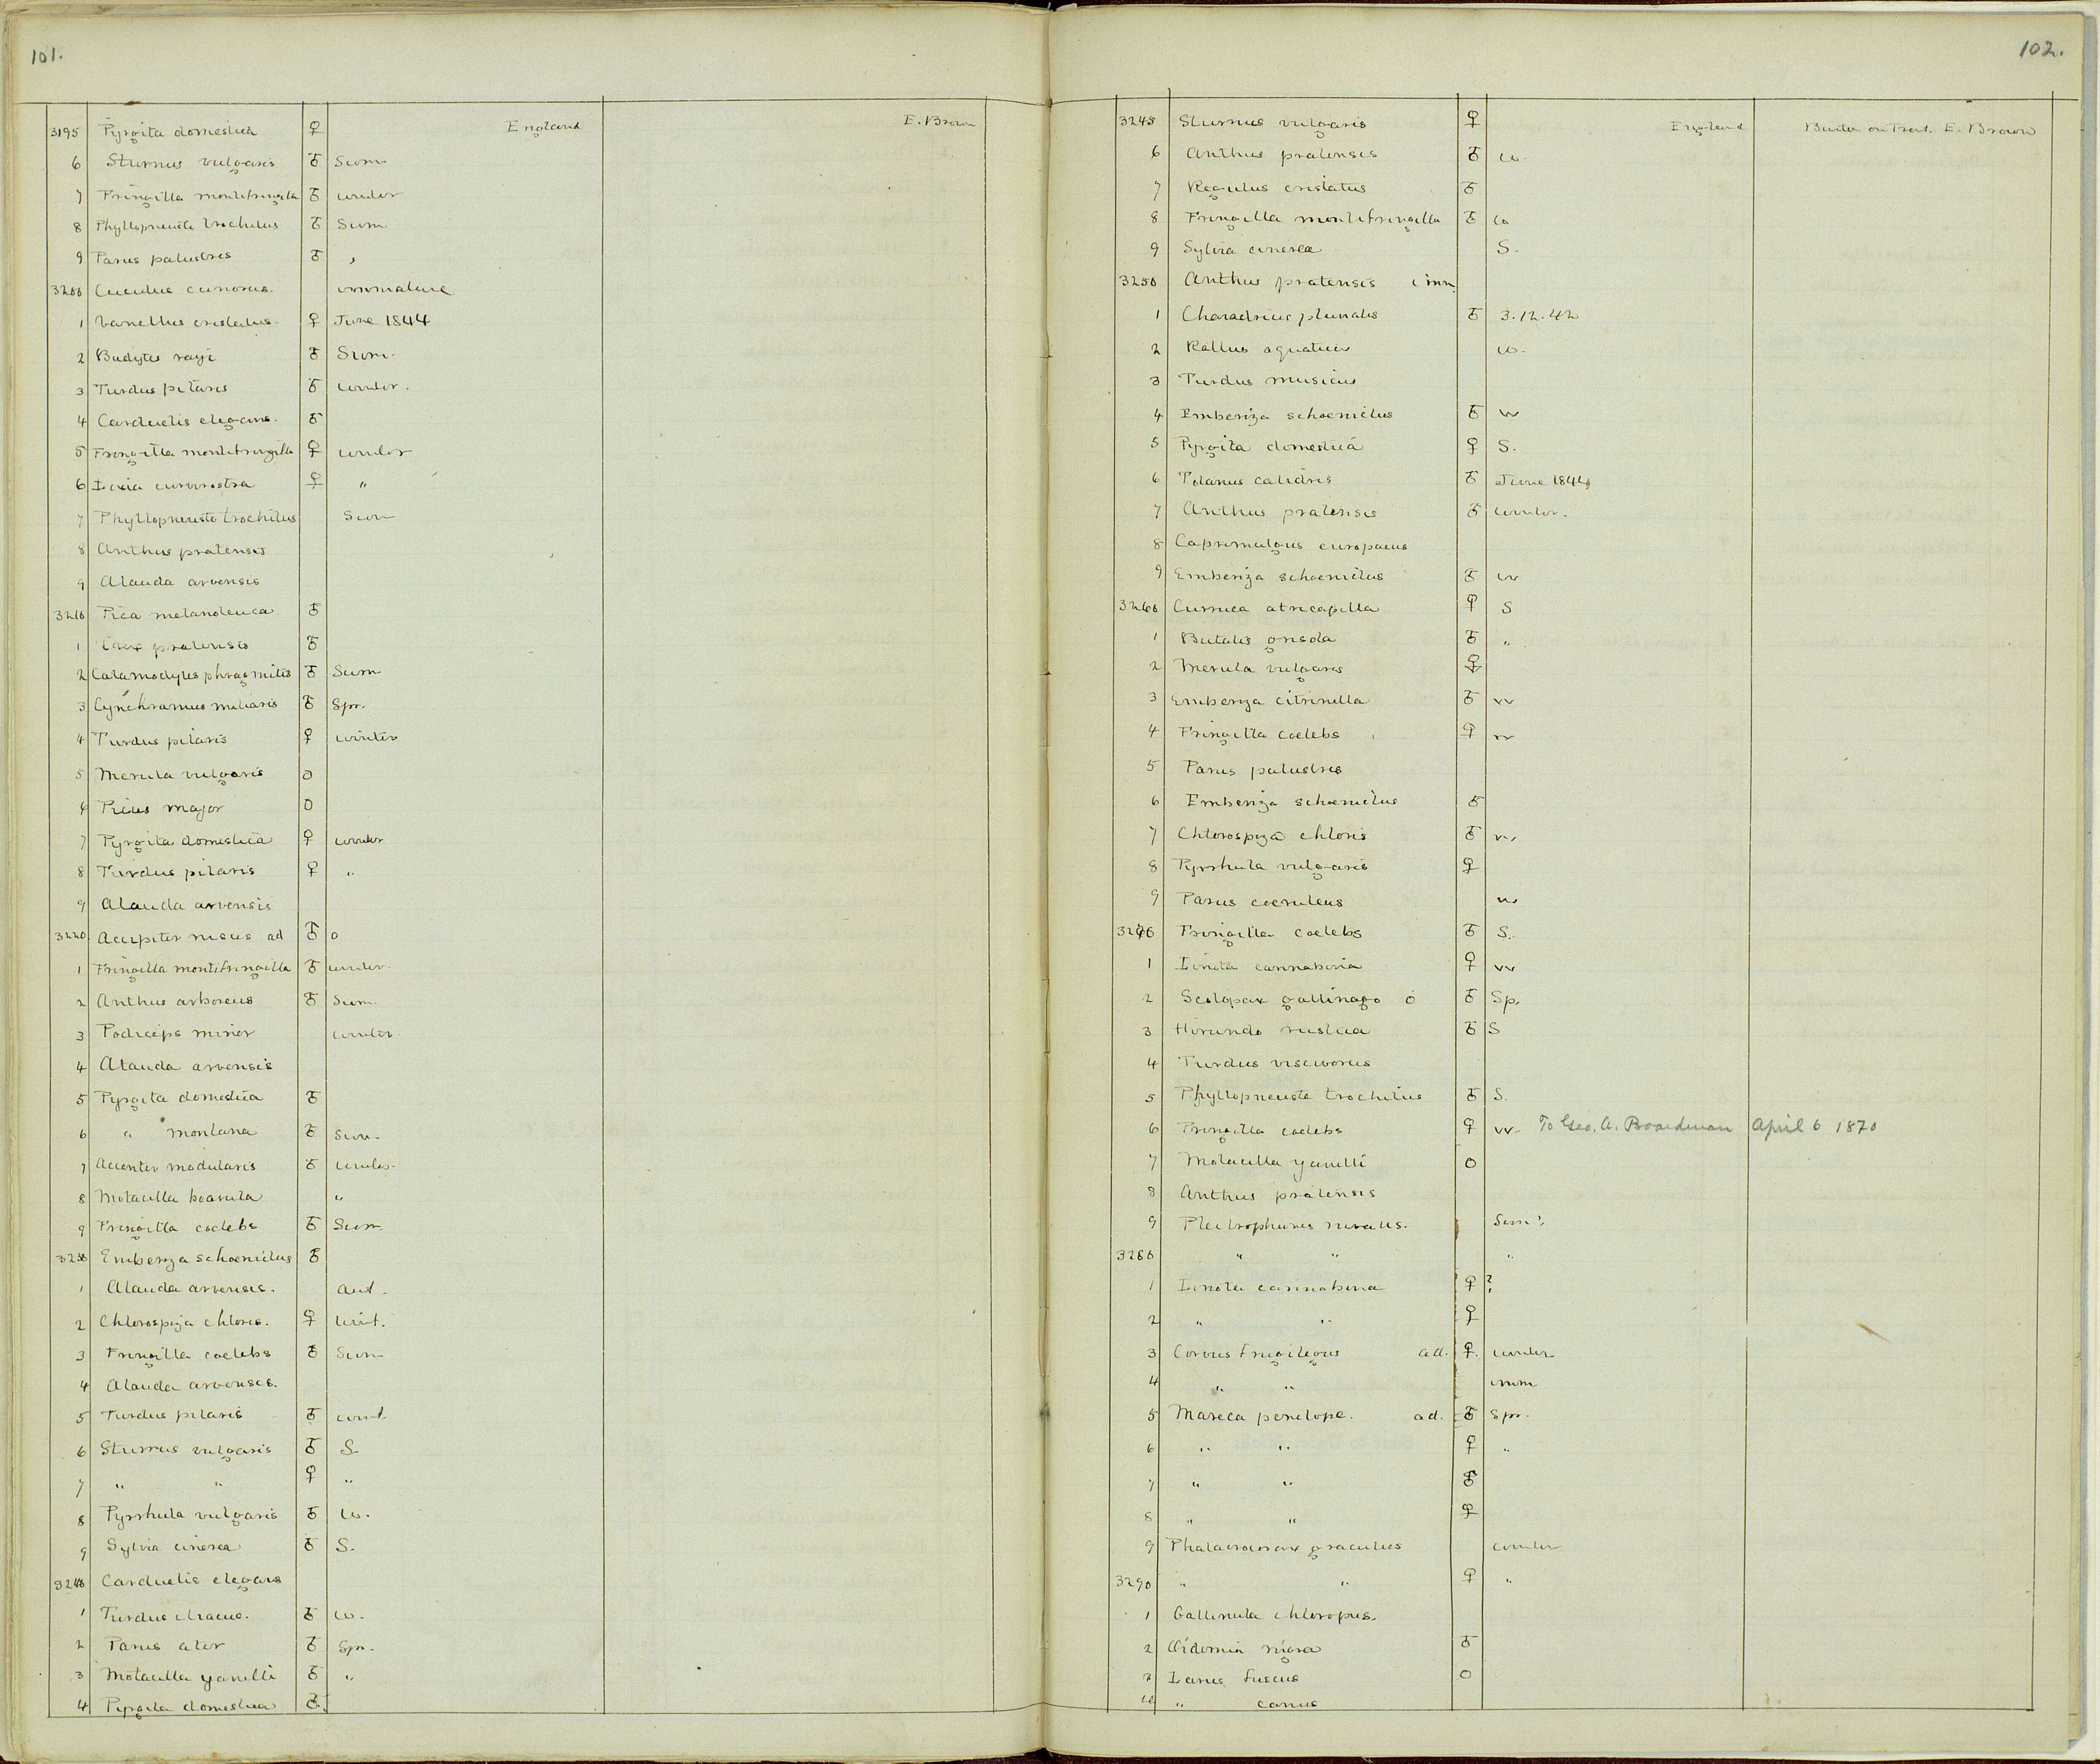 101.
3195 Pyrgita domestica ♀ England E. Brown
6 Sturnus vulgaris ♂ Sum
7 Fringilla montifringilla ♂ winter
8 Phyllopneuste trochilus ♂ Sum
9 Parus palustris ♂ ,
3200 Cuculus canorus. immature
1 Vanellus cristatus. ♀ June 1844
2 Budytes rayi ♂ Sum.
3 Turdus pilaris ♂ winter.
4 Carduelis elegans. ♂
5 Fringilla montifringilla ♀ winter
6 Loxia curvirostra ♀ "
7 Phyllopneuste trochilus Sum
8 Anthus pratensis
9 Alauda arvensis
3210 Pica melanoleuca ♂
1 Crex pratensis ♂
2 Calamodytes phragmitis ♂ Sum
3 Cynchramus miliaris ♂ Spr.
4 Turdus pilaris ♀ winter
5 Merula vulgaris O
6 Picus major O
7 Pyrgita domestica ♀ winter
8 Turdus pilaris ♀ "
9 Alauda arvensis
3220 Accipiter nisus ad ♂ o
1 Fringilla montifringilla ♂ winter.
2 Anthus arboreus ♂ Sum.
3 Podiceps minor winter.
4 Alauda arvensis
5 Pyrgita domestica ♂
6 " montana ♂ Sum.
7 Accentor modularis ♂ winter.
8 Motacilla boarula "
9 Fringilla coelebs ♂ Sum
3230 Emberiza schoeniclus ♂
1 Alauda arvensis. aut.
2 Chlorospiza chloris. ♀ wint.
3 Fringilla coelebs ♂ Sum
4 Alauda arvensis.
5 Turdus pilaris ♂ wint
6 Sturnus vulgaris ♂ S.
7 " " ♀ "
8 Pyrrhula vulgaris ♂ w.
9 Sylvia cinerea ♂ S.
3240 Carduelis elegans
1 Turdus iliacus. ♂ w.
2 Parus ater ♂ Spr.
3 Motacilla yarrelli ♂ "
4 Pyrgita domestica ♂
102.
3245 Sturnus vulgaris ♀ England Burton on Trent. E. Brown
6 Anthus pratensis ♂ w.
7 Regulus cristatus ♂
8 Fringilla montifringilla ♂ w
9 Sylvia cinerea S.
3250 Anthus pratensis imm.
1 Charadrius pluvialis ♂ 3.12.42
2 Rallus aquaticus w.
3 Turdus musicus
4 Emberiza schoeniclus ♂ w
5 Pyrgita domestica ♀ S.
6 Totanus calidris ♂ June 1844
7 Anthus pratensis ♂ winter.
8 Caprimulgus europaeus
9 Emberiza schoeniclus ♂ w
3260 Curruca atricapilla ♀ S
1 Butalis grisola ♂ "
2 Merula vulgaris ♀
3 Emberiza citrinella ♂ w
4 Fringilla coelebs ♀ w
5 Parus palustris
6 Emberiza schoeniclus ♂
7 Chlorospiza chloris ♂ w
8 Pyrrhula vulgaris ♀
9 Parus coeruleus w
3270 Fringilla coelebs ♂ S.
1 Linota cannabina ♀ w
2 Scolopax gallinago o ♂ Sp.
3 Hirundo rustica ♂ S
4 Turdus viscivorus
5 Phyllopneuste trochilus ♂ S.
6 Fringilla coelebs ♀ w. To Geo. A. Boardman April 6 1870
7 Motacilla yarrelli O
8 Anthus pratensis
9 Plectrophanes nivalis. Sum?
3280 " " "
1 Linota cannabina ♀ ?
2 " " ♀
3 Corvus frugilegus ad. ♀. winter
4 " " imm
5 Mareca penelope. ad. ♂ Spr.
6 " " ♀ "
7 " " ♂
8 " " ♀
9 Phalacrocorax graculus winter
3290 " " ♀ "
1 Gallinula chloropus.
2 Oidemia nigra ♂
3 Larus fuscus O
4 " canus